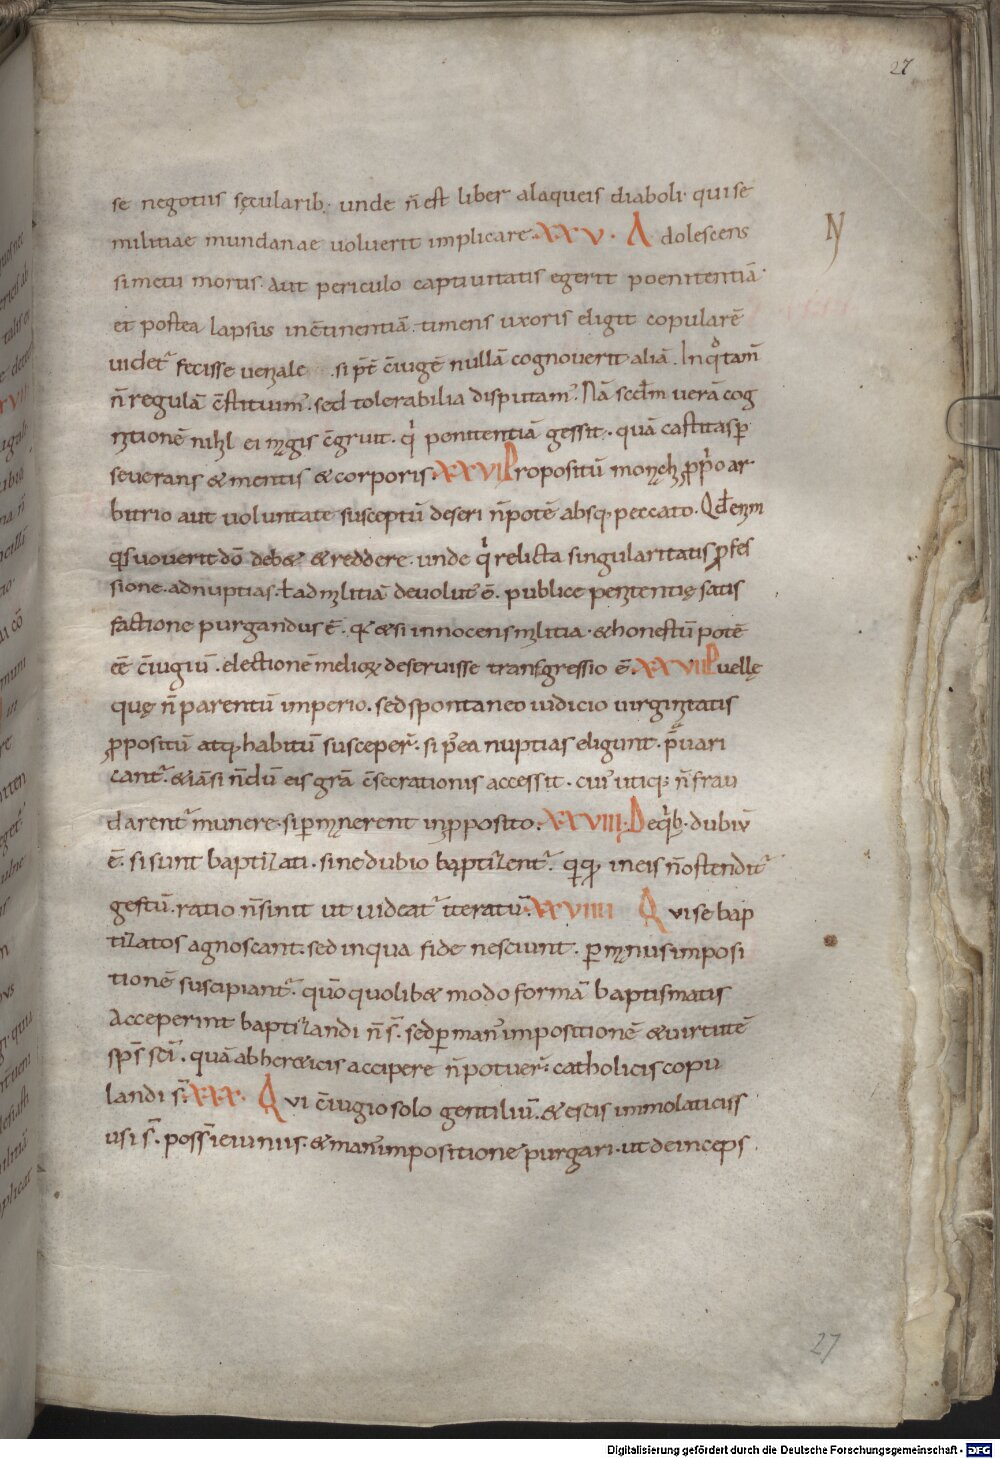 27
se negotiis sęcularib; unde ñ est liber alaqueis diaboli · qui se
militiae mundanae uoluerit implicare · XXV · Adolescens
si metu mortis · aut periculo captiuitatis egerit poenitentiā ·
et postea lapsus incõtinentiā · timens uxoris eligit copularē
uidet᷑ fecisse ueniale · si p̄t̄ c̄iugē nullā cognouerit aliā · In qͦ tam̄
ñ regulā c̄stituim᷒ · sed tolerabilia disputam᷒ · Nā scd̄m uerā cog
nitionē nihil ei magis c̄gruit · qͥ penitentiā gessit · quā castitas ꝑ
seuerans & mentis & corporis · XXVI Propositū monachi ꝓpͥo ar
bitrio aut uoluntate susceptū deseri ñ potē absq; peccato · Qđ enim
qͥs uouerit dō deb& & reddere · unde qͥ relicta singularitatis ꝓfes
sione · ad nuptias · ł ad militiā deuolut᷒ ē · publice penitentię satis
factione purgandus ē · qꝛ & si innocens militia · & honestū potē
ēē c̄iugiū · electionē melioꝝ deseruisse transgressio ē · XXVII Puellę
quę ñ parentū imperio · sed spontaneo iudicio uirginitatis
ꝓpositū atq; habitū susceper᷑ · si p᷒ea nuptias eligunt · p̄uari
cant᷑ · & iā si ñdū eis grā c̄secrationis accessit · cui᷒ utiq; ñ frau
darent᷑ munere · si ꝑmanerent in ꝓposito · XXVIII · De qͥb; · dubiū
ē · si sunt baptizati · sine dubio baptizent᷑ · qͥ qꝫ in eis ñ ostendit᷑
gestū · ratio ñ sinit ut uideat᷑ iteratū · XXVIIII Qui se bap
tizatos agnoscant · sed in qua fide nesciunt · ꝑ manus imposi
tionē suscipiant᷑ · quō quolib& modo formā baptismatis
acceperint baptizandi ñ s̄ · sed ꝑ man᷒ impositionē & uirtutē
sp̄s sc̄i · quā ab her&icis accipere ñ potuer᷑ · catholicis copu
landi s̄ · XXX · Qui c̄iugio solo gentiliū · & escis immolaticiis
usi s̄ · poss̄ ieiuniis · & man᷒ impositione purgari · ut deinceps
27
Digitalisierung gefördert durch die Deutsche Forschungsgemeinschaft - DFG